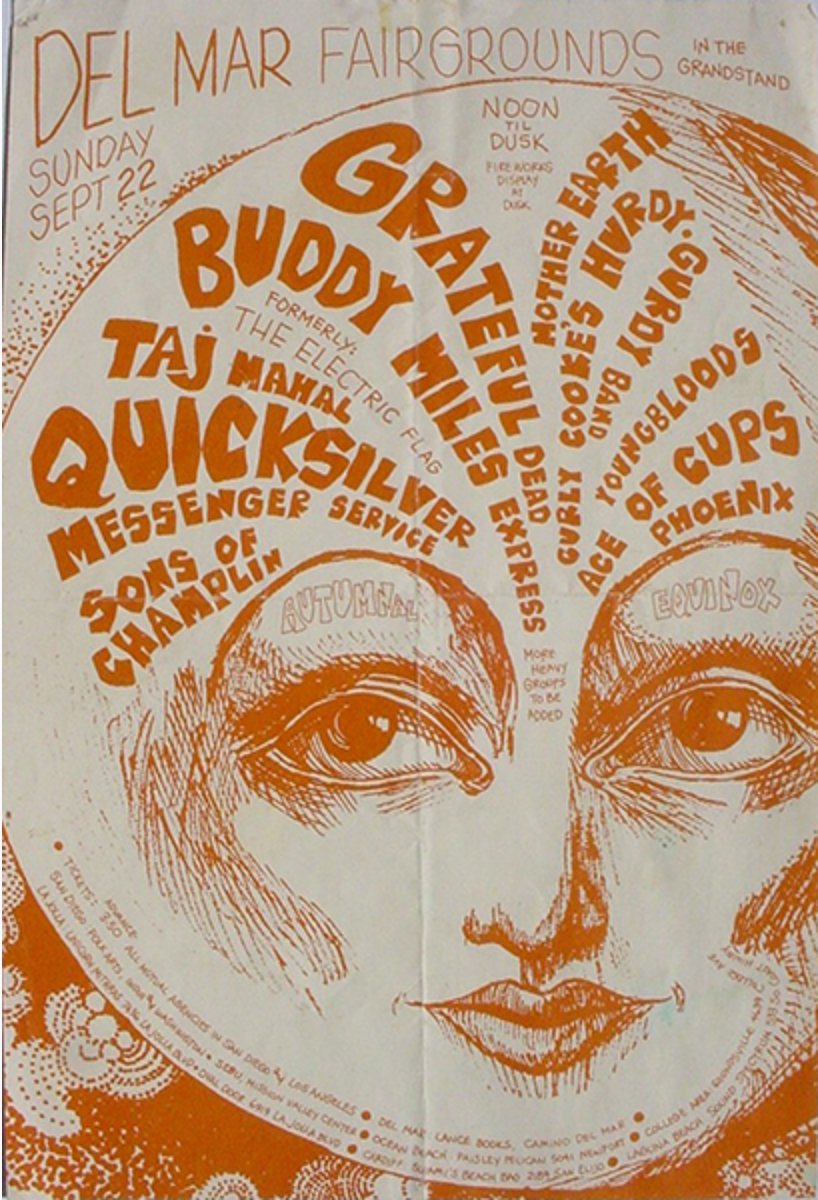 DEL MAR FAIRGROUNDS
IN THE
GRANDSTAND
SUNDAY
SEPT 22
NOON
TIL
DUSK
FIREWORKS
DISPLAY
AT
DUSK
GRATEFUL DEAD
BUDDY MILES EXPRESS
FORMERLY:
THE ELECTRIC FLAG
TAJ MAHAL
QUICKSILVER
MESSENGER SERVICE
SONS OF
CHAMPLIN
MOTHER EARTH
CURLY COOKE'S HURDY-GURDY BAND
YOUNGBLOODS
ACE OF CUPS
PHOENIX
AUTUMNAL
EQUINOX
MORE
HEAVY
GROUPS
TO BE
ADDED
TICKETS: ADVANCE 3.50 ALL MUTUAL AGENCIES IN SAN DIEGO & LOS ANGELES • DEL MAR: LANCE BOOKS, CAMINO DEL MAR •
SAN DIEGO: FOLK ARTS WASHINGTON • MISSION VALLEY CENTER • OCEAN BEACH: PAISLEY PELICAN NEWPORT • COLLEGE AREA:
LA JOLLA: LA JOLLA BLVD • LA JOLLA BLVD • CARDIFF: SWAMI'S BEACH BAG SAN ELIJO • LAGUNA BEACH: SOUND SPECTRUM